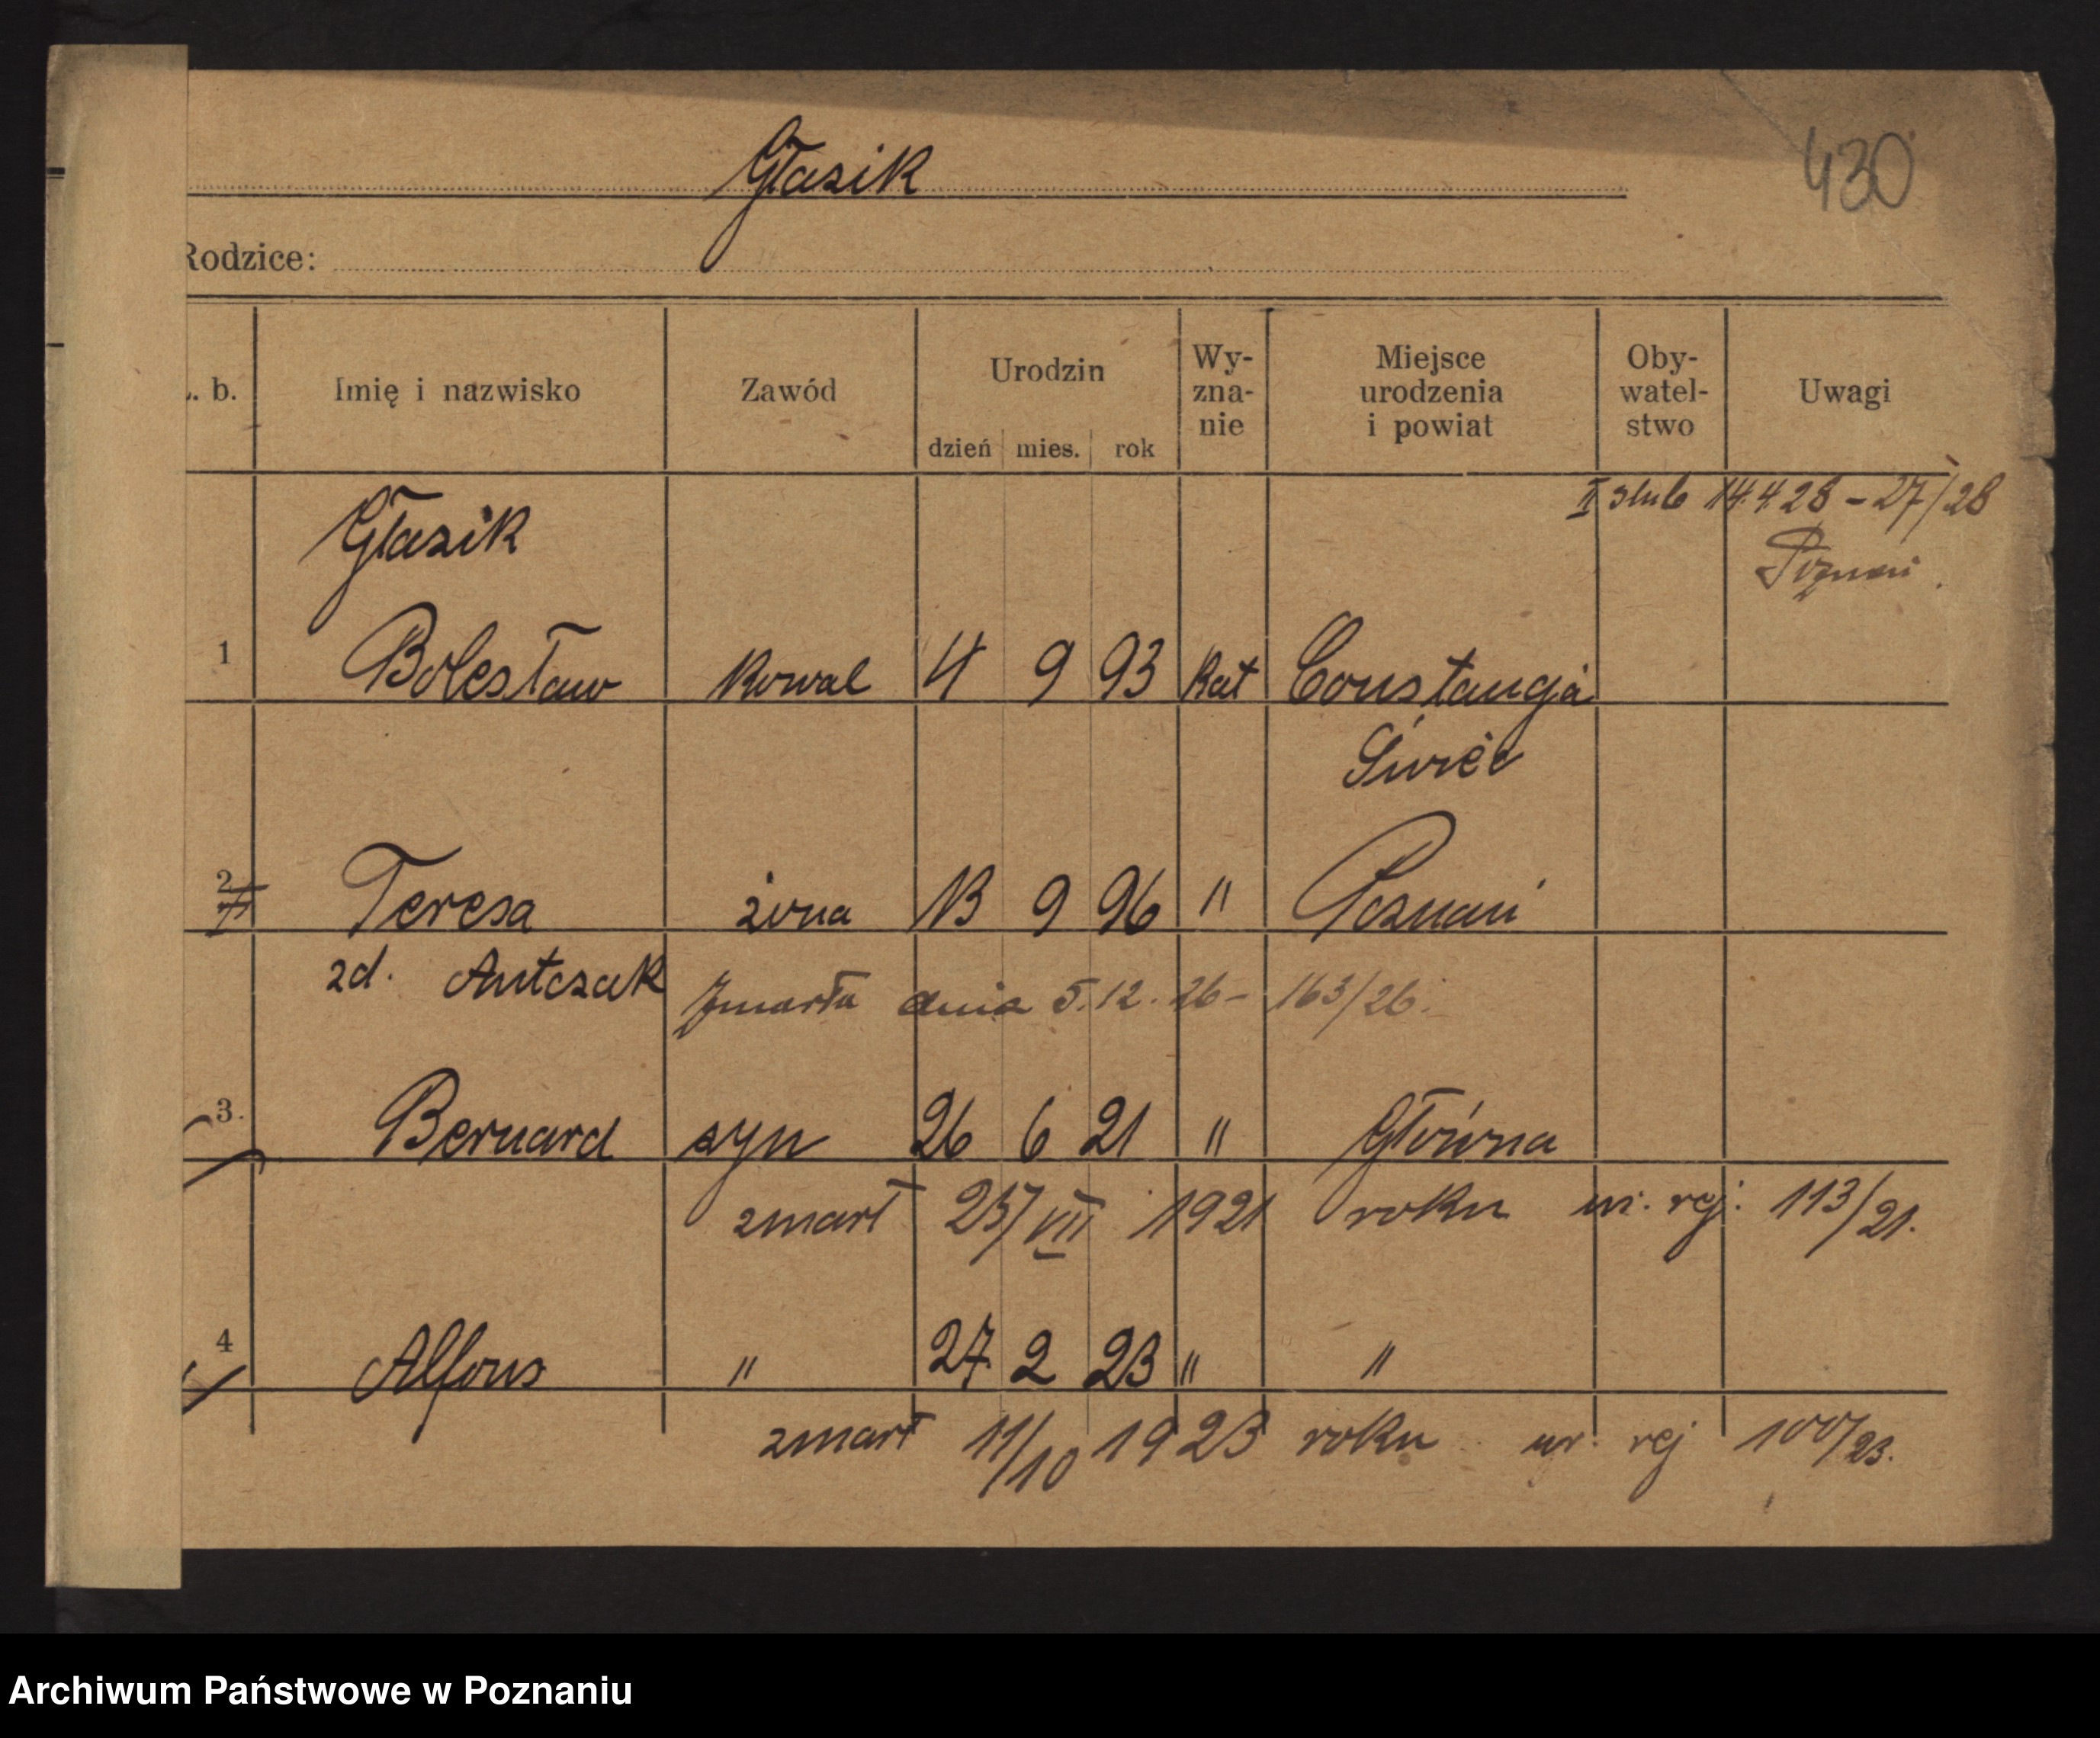 Głasik
430
Rodzice:
L. b. Imię i nazwisko Zawód Urodzin dzień mies. rok Wy-zna-nie Miejsce urodzenia i powiat Oby-watel-stwo Uwagi
II slub 14.4.28 – 27/28
Poznań.
Głasik
1 Bolesław Kowal 4 9 93 Kat Constancja
Świéc
2 Teresa żona 13 9 96 " Poznań
zd. Antczak Zmarła dnia 5.12.26 – 163/26.
3. Bernard syn 26 6 21 " Główna
zmarł 25/VII 1921 roku nr. rej. 113/21.
4 Alfons " 27. 2 23 " "
zmarł 11/10 1923 roku nr. rej 100/23.
Archiwum Państwowe w Poznaniu